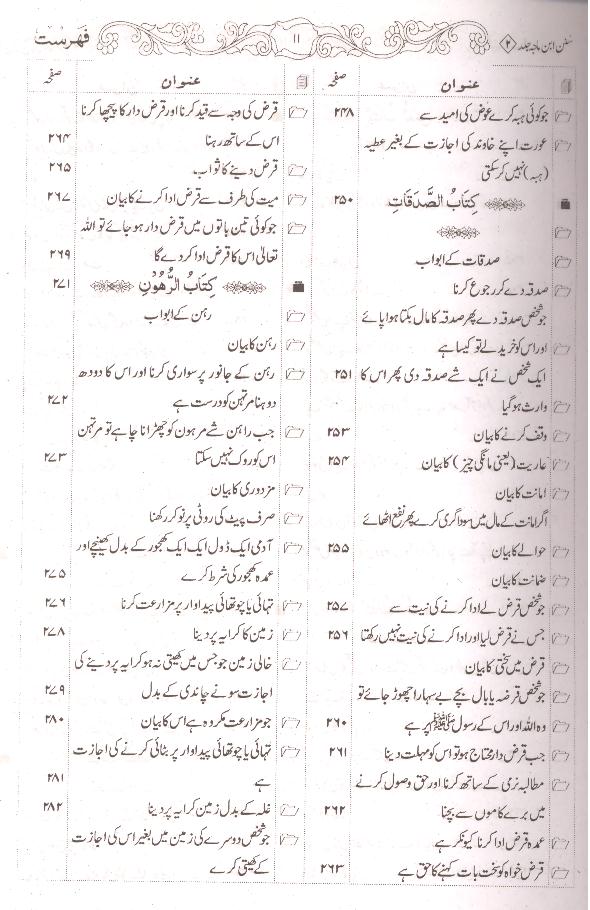 سنن ابن ماجہ جلد ۲
۱۱
فہرست
عنوان صفحہ
جو کوئی ہبہ کرے عوض کی امید سے ۲۴۸
عورت اپنے خاوند کی اجازت کے بغیر عطیہ
(ہبہ) نہیں کر سکتی
کِتَابُ الصَّدَقَاتِ ۲۵۰
صدقات کے ابواب
صدقہ دے کر رجوع کرنا
جو شخص صدقہ دے پھر صدقہ کا مال بکتا ہوا پائے
اور اس کو خرید لے تو کیسا ہے
ایک شخص نے ایک شے صدقہ دی پھر اس کا ۲۵۱
وارث ہو گیا
وقف کرنے کا بیان ۲۵۳
عاریت (یعنی مانگی چیز) کا بیان ۲۵۴
امانت کا بیان
اگر امانت کے مال میں سوداگری کرے پھر نفع اٹھائے
حوالے کا بیان ۲۵۵
ضمانت کا بیان
جو شخص قرض لے ادا کرنے کی نیت سے ۲۵۷
جس نے قرض لیا اور ادا کرنے کی نیت نہیں رکھتا ۲۵۶
قرض میں سختی کا بیان
جو شخص قرضہ یا بال بچے بے سہارا چھوڑ جائے تو
وہ اللہ اور اس کے رسول ﷺ پر ہے ۲۶۰
جب قرض دار محتاج ہو تو اس کو مہلت دینا ۲۶۱
مطالبہ نرمی کے ساتھ کرنا اور حق وصول کرنے
میں برے کاموں سے بچنا ۲۶۲
عمدہ قرض ادا کرنا کیونکر ہے
قرض خواہ کو سخت بات کہنے کا حق ہے ۲۶۳
عنوان صفحہ
قرض کی وجہ سے قید کرنا اور قرض دار کا پیچھا کرنا
اس کے ساتھ رہنا ۲۶۴
قرض دینے کا ثواب ۲۶۵
میت کی طرف سے قرض ادا کرنے کا بیان ۲۶۷
جو کوئی تین باتوں میں قرض دار ہو جائے تو اللہ
تعالیٰ اس کا قرض ادا کر دے گا ۲۶۹
کِتَابُ الرُّهُوْنِ ۲۷۱
رہن کے ابواب
رہن کا بیان
رہن کے جانور پر سواری کرنا اور اس کا دودھ
دوہنا مرتہن کو درست ہے ۲۷۲
جب راہن شے مرہون کو چھڑانا چاہے تو مرتہن
اس کو روک نہیں سکتا ۲۷۳
مزدوری کا بیان
صرف پیٹ کی روٹی پر نوکر رکھنا
آدمی ایک ڈول ایک ایک کھجور کے بدل کھینچے اور
عمدہ کھجور کی شرط کرے ۲۷۵
تہائی یا چوتھائی پیداوار پر مزارعت کرنا ۲۷۶
زمین کا کرایہ پر دینا ۲۷۸
خالی زمین جو جس میں کھیتی نہ ہو کرایہ پر دینے کی
اجازت سونے چاندی کے بدل ۲۷۹
جو مزارعت مکروہ ہے اس کا بیان ۲۸۰
تہائی یا چوتھائی پیداوار پر بٹائی کرنے کی اجازت
ہے ۲۸۱
غلہ کے بدل زمین کرایہ پر دینا ۲۸۲
جو شخص دوسرے کی زمین میں بغیر اس کی اجازت
کے کھیتی کرے